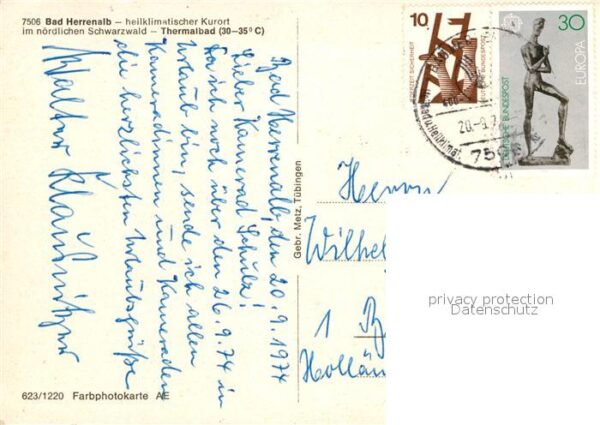 7506 Bad Herrenalb – heilklimatischer Kurort
im nördlichen Schwarzwald – Thermalbad (30–35° C)
Bad Herrenalb, den 20.9.1974
Lieber Kamerad Schulz!
Da ich noch über den 26.9.74 in
Urlaub bin, sende ich allen
Kameradinnen und Kameraden
die herzlichsten Urlaubsgrüße
Walter
Gebr. Metz, Tübingen
623/1220 Farbphotokarte AE
10
DEUTSCHE BUNDESPOST
30
EUROPA
DEUTSCHE BUNDESPOST
20.-9.7
750
Herrn
Wilhel
1 B
Hollän
privacy protection
Datenschutz